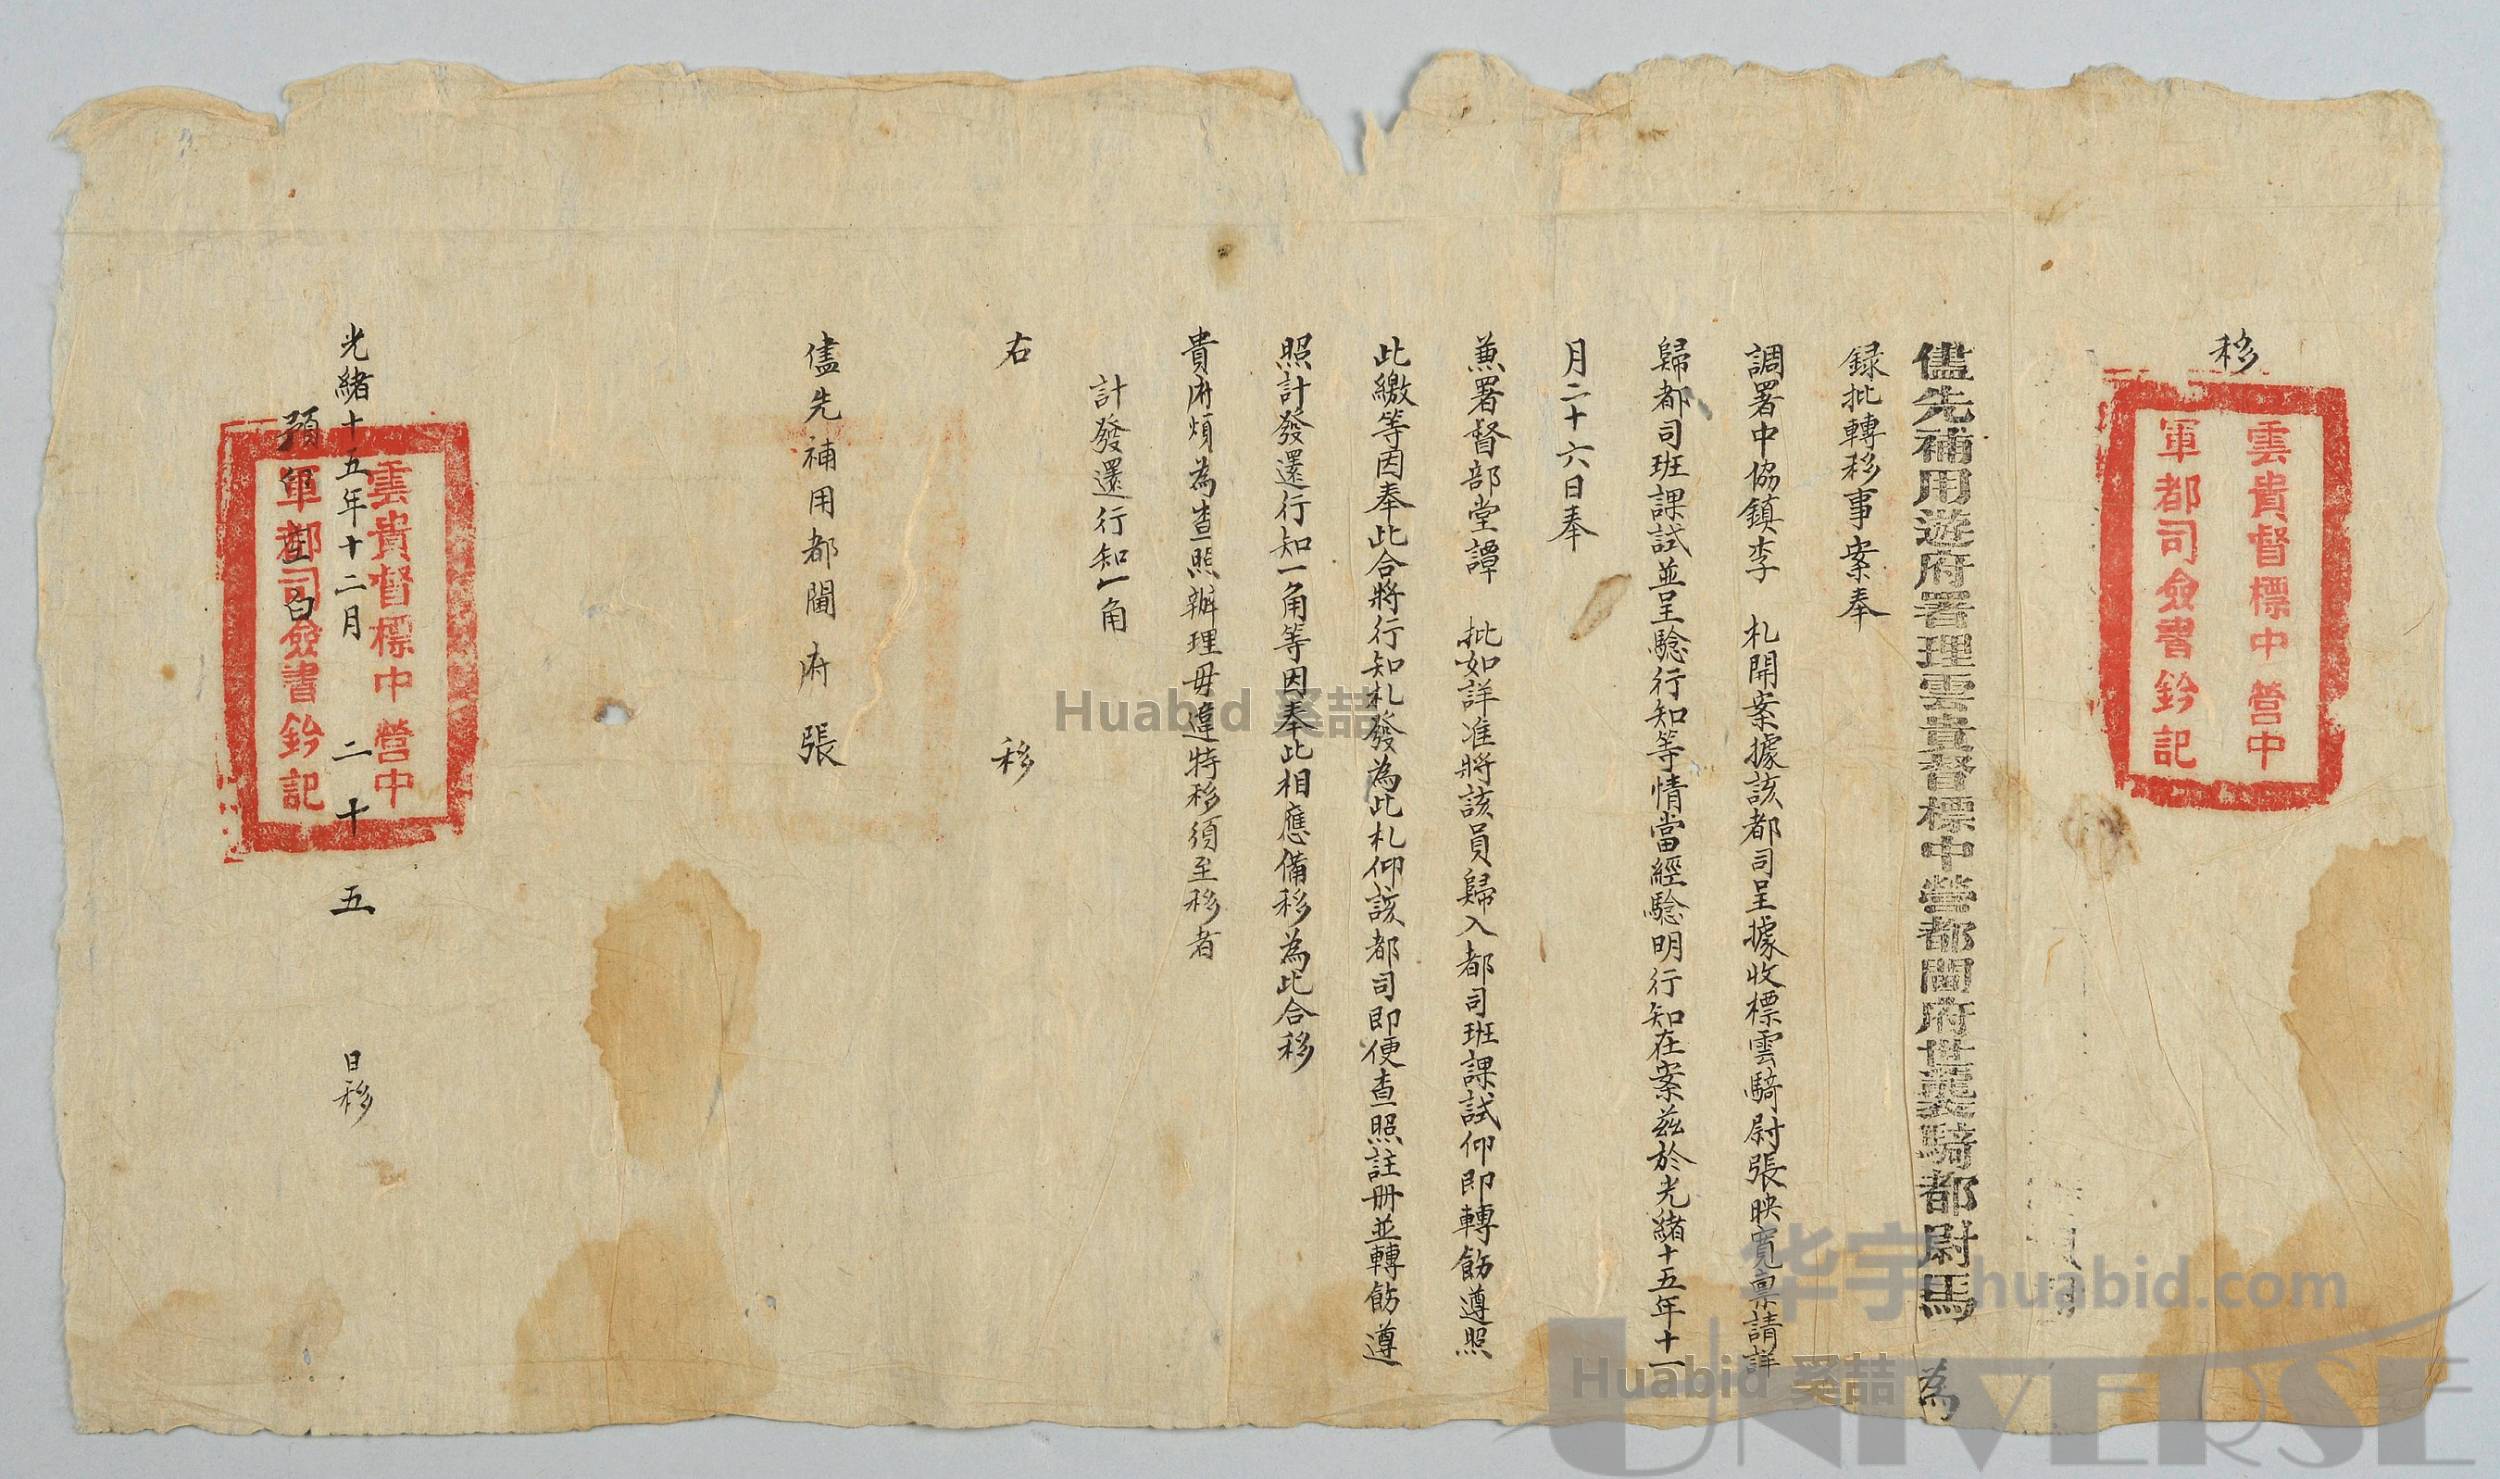 移
雲貴督標中營中
軍都司僉書鈐記
儘先補用遊府署理雲貴督標中營都閫府世襲騎都尉馬 為
録批轉移事案奉
調署中協鎮李 札開案據該都司呈據收標雲騎尉張映寬稟請詳
歸都司班課試並呈驗行知等情當經驗明行知在案茲於光緒十五年十一
月二十六日奉
兼署督部堂譚 批如詳准將該員歸入都司班課試仰即轉飭遵照
此繳等因奉此合將行知札發為此札仰該都司即便查照註册並轉飭遵
照計發還行知一角等因奉此相應備移為此合移
貴府煩為查照辦理毋違特移須至移者
計發還行知一角
右 移
儘先補用都閫府張
光緒十五年十二月 二十五 日移
預印空白
雲貴督標中營中
軍都司僉書鈐記
Huabid 奚喆
华宇 huabid.com
Huabid 奚喆
UNIVERSE